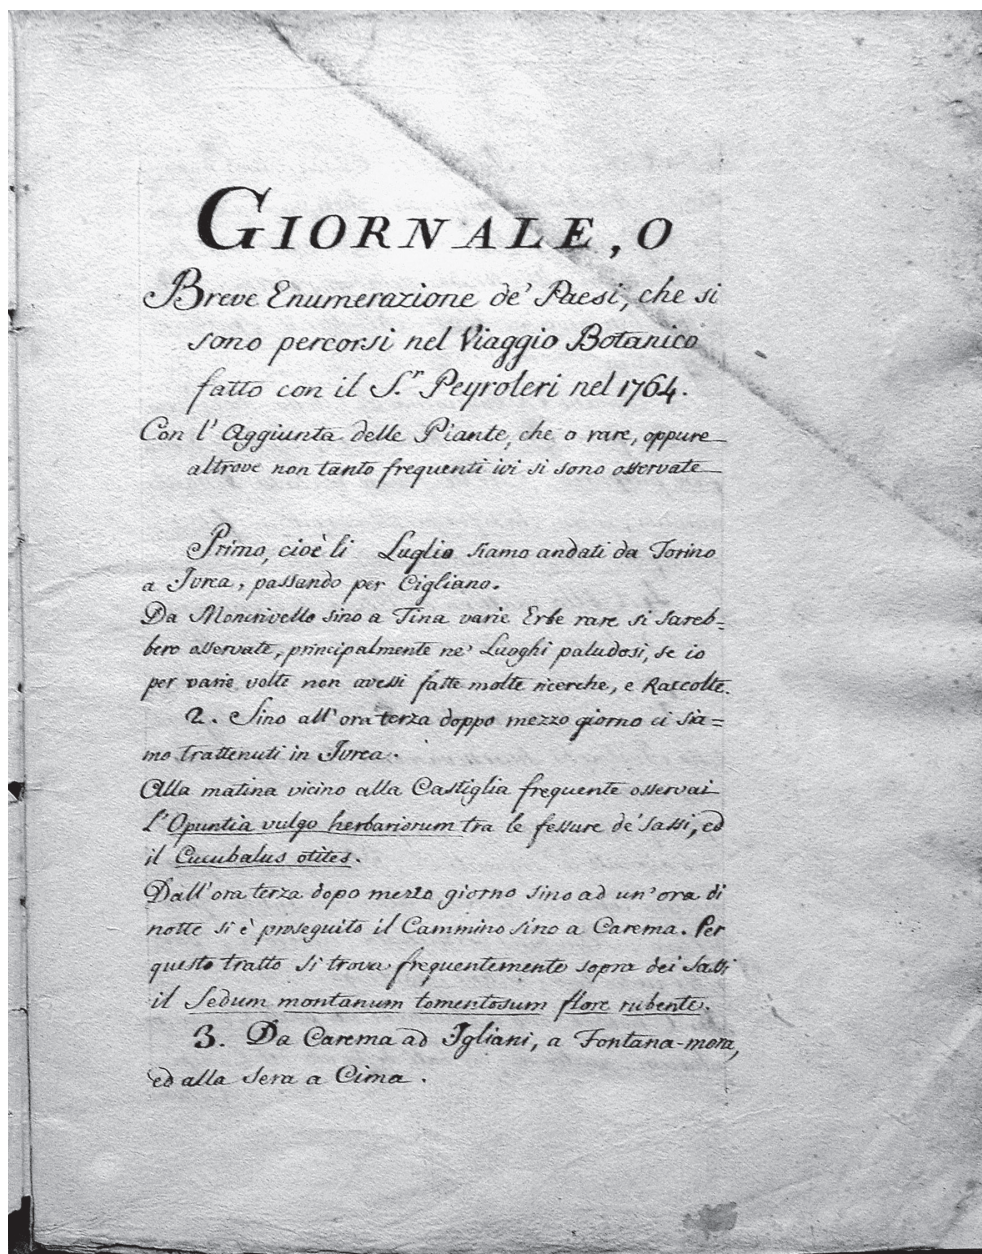 GIORNALE, O
Breve Enumerazione de' Paesi, che si
sono percorsi nel Viaggio Botanico
fatto con il S.r Peyroleri nel 1764.
Con l'Aggiunta delle Piante, che o rare, oppure
altrove non tanto frequenti ivi si sono osservate
Primo, cioè li Luglio siamo andati da Torino
a Ivrea, passando per Cigliano.
Da Moncrivello sino a Tina varie Erbe rare si sareb=
bero osservate, principalmente ne' Luoghi paludosi, se io
per varie volte non avessi fatte molte ricerche, e Raccolte.
2. Sino all'ora terza doppo mezzo giorno ci sia=
mo trattenuti in Ivrea.
Alla matina vicino alla Castiglia frequente osservai
l'Opuntia vulgo herbariorum tra le fessure de' sassi, ed
il Cucubalus otites.
Dall'ora terza dopo mezzo giorno sino ad un'ora di
notte si è proseguito il Cammino sino a Carema. Per
questo tratto si trova frequentemente sopra dei Sassi
il Sedum montanum tomentosum flore rubente.
3. Da Carema ad Igliani, a Fontana-mora,
ed alla sera a Cima.